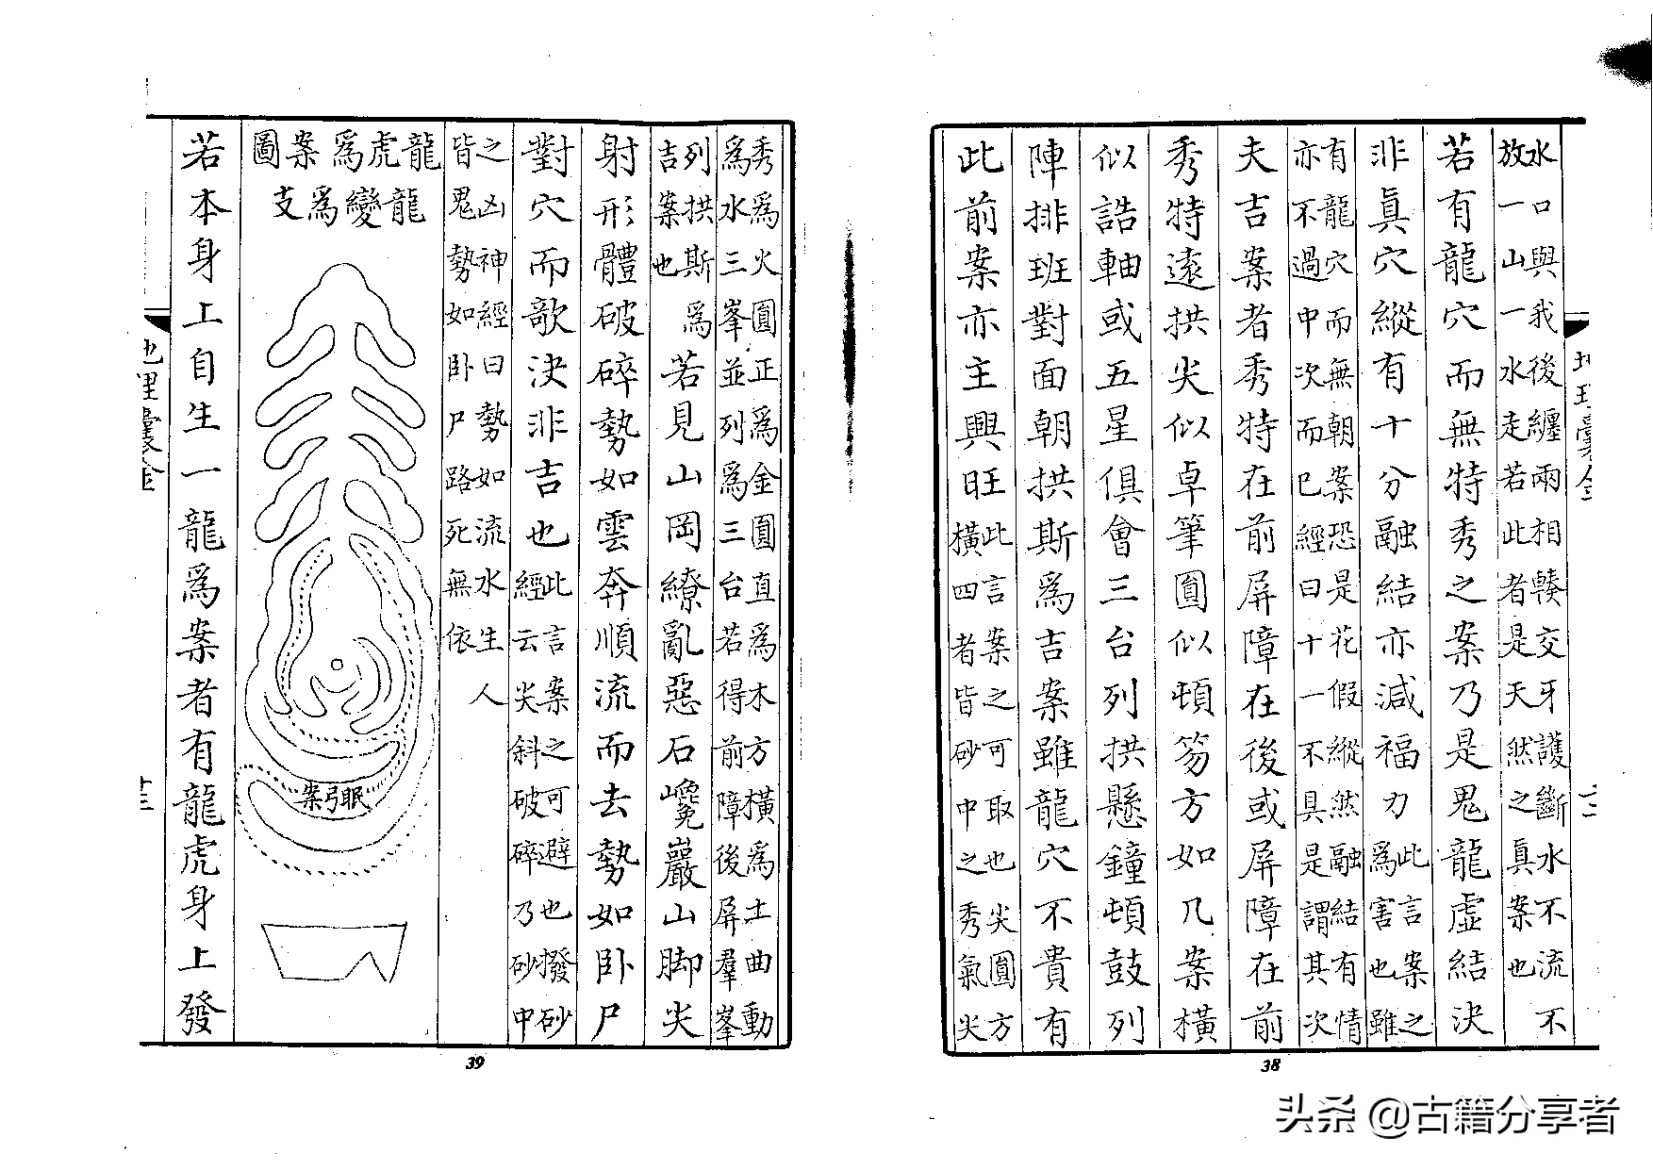 地理囊金
十二
水口與我後纏兩相輳交牙護斷水不流不
放一山一水走若此者是天然之真案也
若有龍穴而無特秀之案乃是鬼龍虛結決
非眞穴縱有十分融結亦減福力此言案之為害也雖
有龍穴而無朝案恐是花假縱然融結有情
亦不過中次而已經曰十一不具是謂其次
夫吉案者秀特在前屏障在後或屏障在前
秀特遠拱尖似卓筆圓似頓笏方如几案橫
似誥軸或五星俱會三台列拱懸鐘頓鼓列
陣排班對面朝拱斯爲吉案雖龍穴不貴有
此前案亦主興旺此言案之可取也尖圓方橫四者皆砂中之秀氣尖
38
秀爲火圓正爲金圓直爲木方橫爲土曲動
爲水三峯並列爲三台若得前障後屏羣峯
列拱斯爲吉案也若見山岡繚亂惡石巉巖山脚尖
射形體破碎勢如雲奔順流而去勢如卧尸
對穴而欹決非吉也此言案之可避也撥砂經云尖斜破碎乃砂中
之凶神經曰勢如流水生人
皆鬼勢如卧尸路死無依
龍虎爲案圖
龍變爲支
眠弓案
若本身上自生一龍爲案者有龍虎身上發
地理囊金
十三
39
头条 @古籍分享者